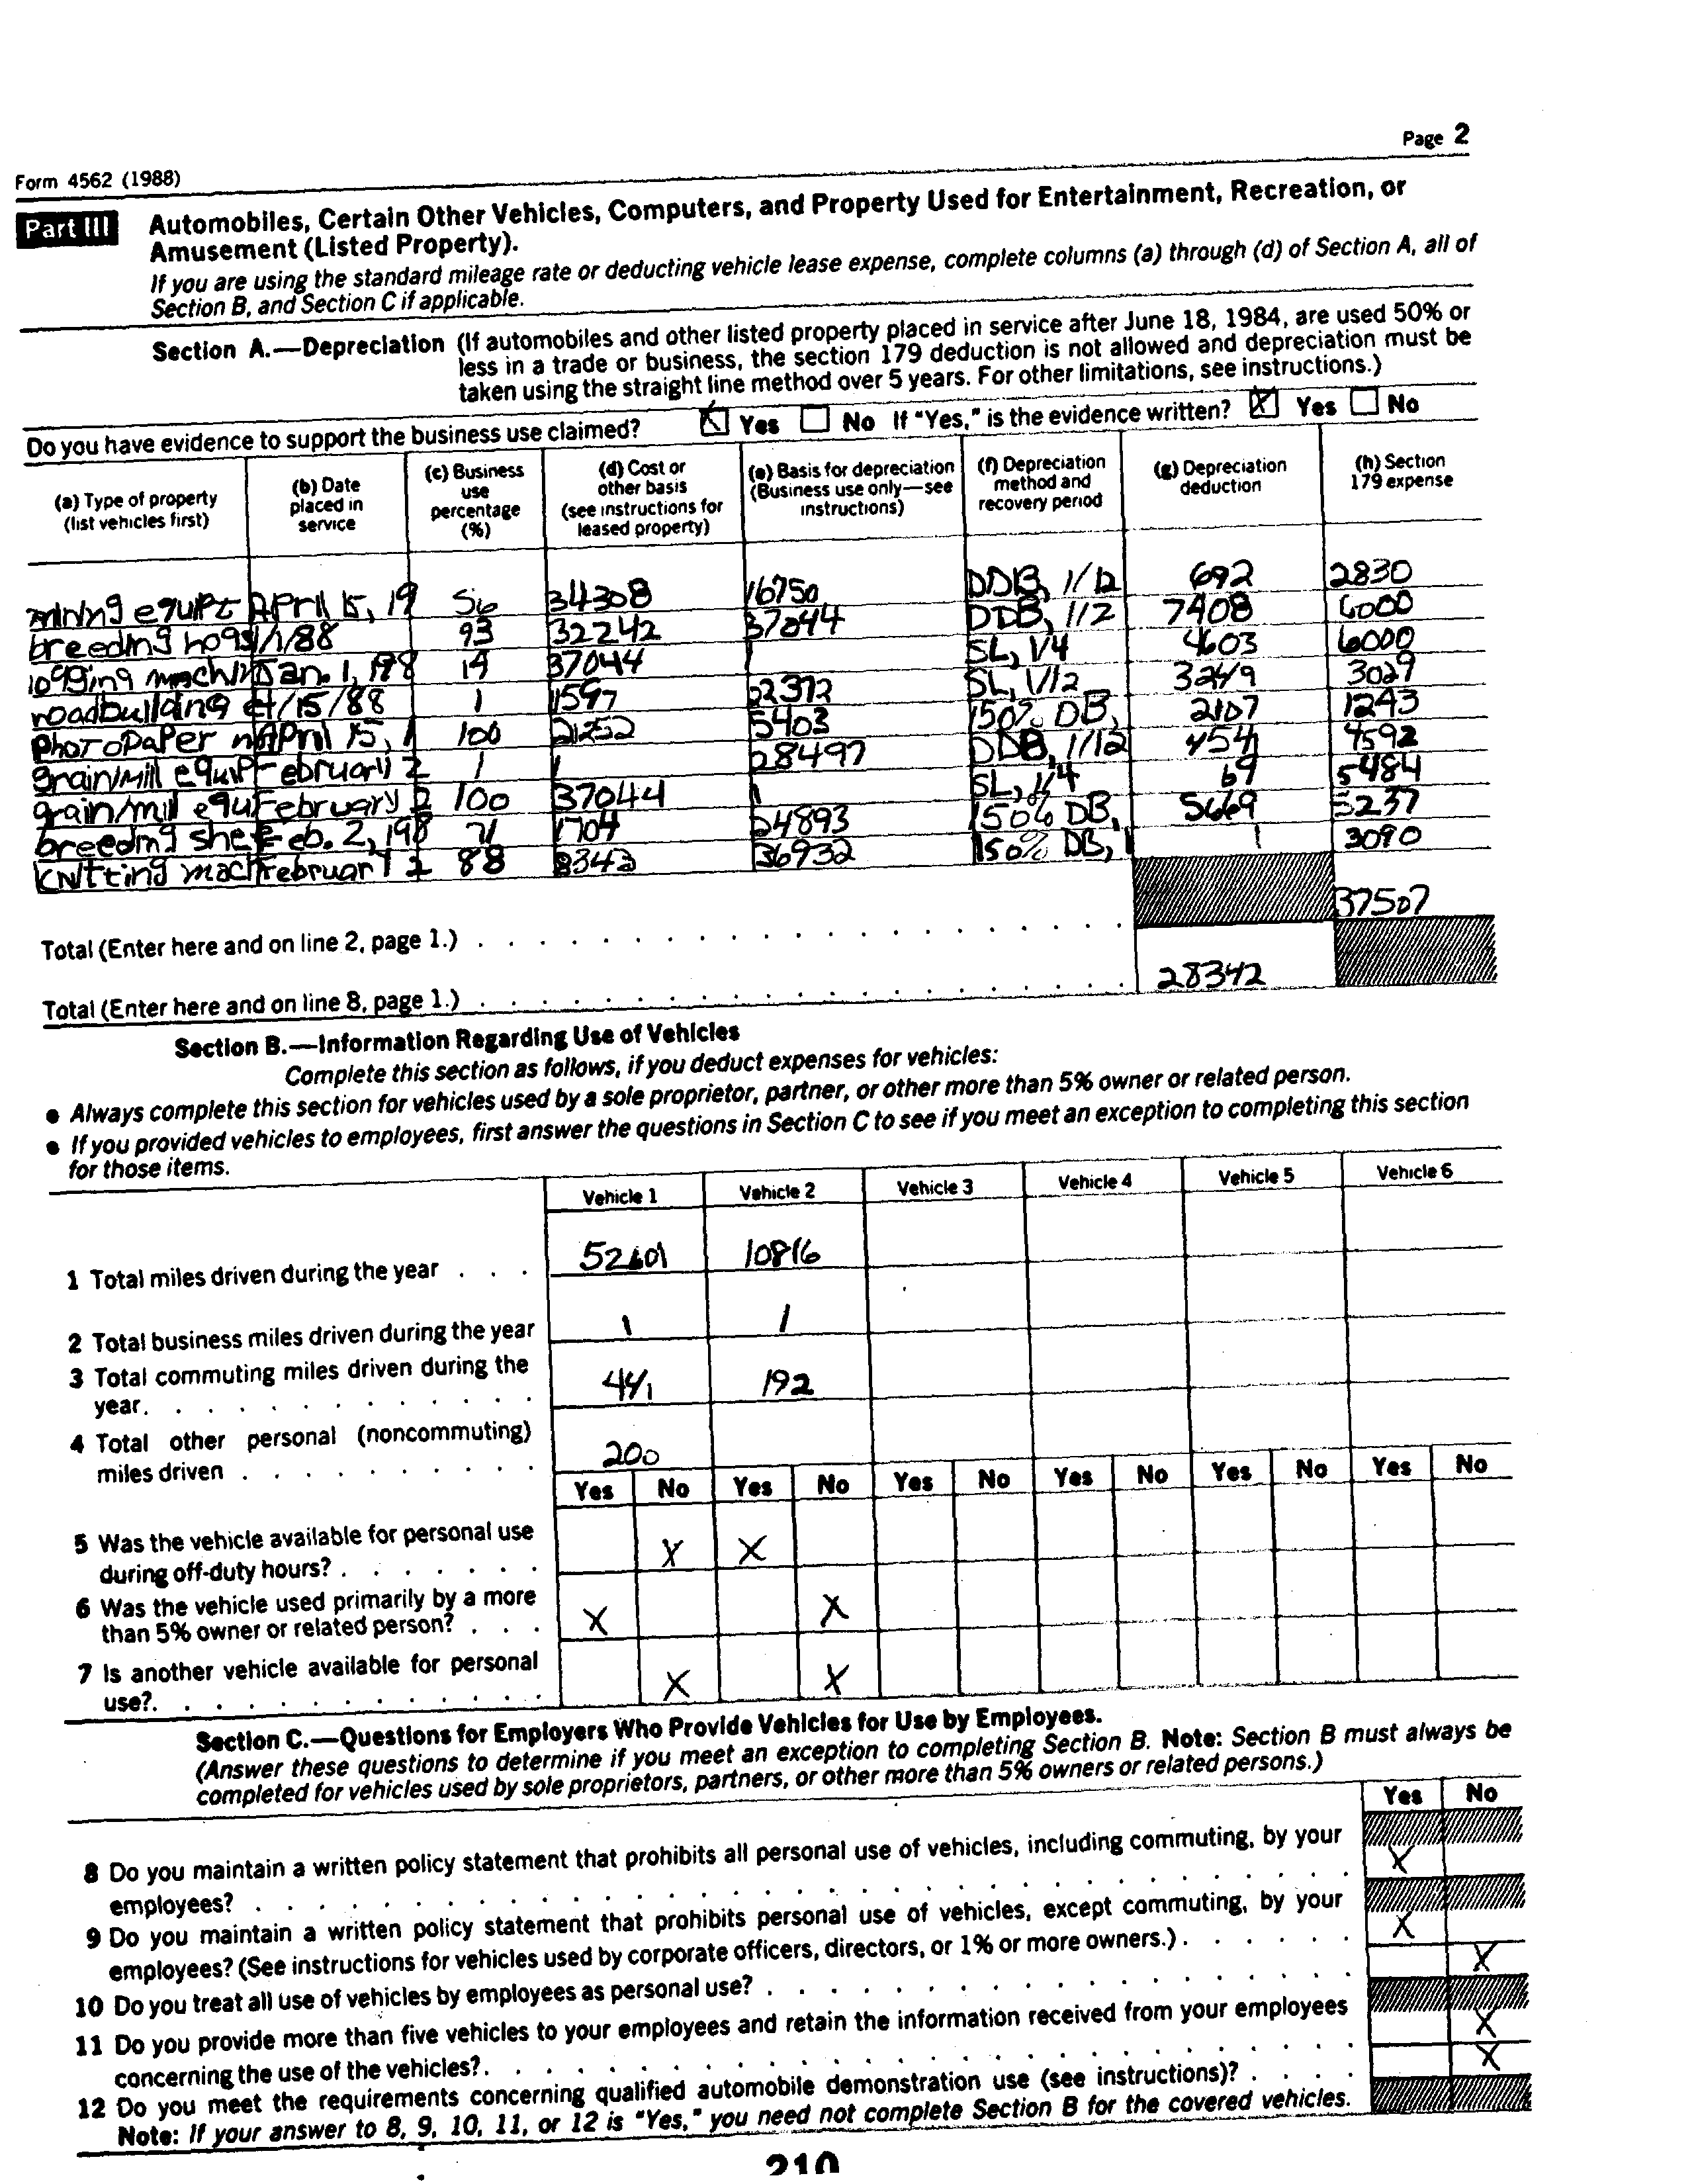 Page 2
Form 4562 (1988)
Part III Automobiles, Certain Other Vehicles, Computers, and Property Used for Entertainment, Recreation, or
Amusement (Listed Property).
If you are using the standard mileage rate or deducting vehicle lease expense, complete columns (a) through (d) of Section A, all of
Section B, and Section C if applicable.
Section A.—Depreciation (If automobiles and other listed property placed in service after June 18, 1984, are used 50% or
less in a trade or business, the section 179 deduction is not allowed and depreciation must be
taken using the straight line method over 5 years. For other limitations, see instructions.)
Do you have evidence to support the business use claimed? X Yes No If "Yes," is the evidence written? X Yes No
(a) Type of property (list vehicles first) (b) Date placed in service (c) Business use percentage (%) (d) Cost or other basis (see instructions for leased property) (e) Basis for depreciation (Business use only—see instructions) (f) Depreciation method and recovery period (g) Depreciation deduction (h) Section 179 expense
mining equipt April 15, 19 56 34308 16750 DDB, 1/12 692 2830
breeding hogs 1/1/88 93 32242 37044 DDB, 1/2 7408 6000
logging machin Jan. 1, 198 14 37044 1 SL, 1/4 4603 6000
roadbuilding e 4/15/88 1 1597 22372 SL, 1/12 3249 3029
photopaper m April 15, 1 100 21252 5403 150% DB, 2107 1243
grain/mill equip February 2 1 1 28497 DDB, 1/12 454 4592
grain/mill equ February 2 100 37044 1 SL, 1/4 69 5484
breeding shee Feb. 2, 198 71 1704 24893 150% DB, 5669 5237
knitting mach February 2 88 8343 36932 150% DB, 1 1 3090
37507
Total (Enter here and on line 2, page 1.)
28342
Total (Enter here and on line 8, page 1.)
Section B.—Information Regarding Use of Vehicles
Complete this section as follows, if you deduct expenses for vehicles:
● Always complete this section for vehicles used by a sole proprietor, partner, or other more than 5% owner or related person.
● If you provided vehicles to employees, first answer the questions in Section C to see if you meet an exception to completing this section
for those items.
Vehicle 1 Vehicle 2 Vehicle 3 Vehicle 4 Vehicle 5 Vehicle 6
1 Total miles driven during the year . . . 52601 10816
2 Total business miles driven during the year 1 1
3 Total commuting miles driven during the
year. 441 192
4 Total other personal (noncommuting)
miles driven 200
Yes No Yes No Yes No Yes No Yes No Yes No
5 Was the vehicle available for personal use
during off-duty hours? X X
6 Was the vehicle used primarily by a more
than 5% owner or related person? . . . X X
7 Is another vehicle available for personal
use?. X X
Section C.—Questions for Employers Who Provide Vehicles for Use by Employees.
(Answer these questions to determine if you meet an exception to completing Section B. Note: Section B must always be
completed for vehicles used by sole proprietors, partners, or other more than 5% owners or related persons.)
Yes No
8 Do you maintain a written policy statement that prohibits all personal use of vehicles, including commuting, by your
employees? X
9 Do you maintain a written policy statement that prohibits personal use of vehicles, except commuting, by your
employees? (See instructions for vehicles used by corporate officers, directors, or 1% or more owners.) X
10 Do you treat all use of vehicles by employees as personal use? X
11 Do you provide more than five vehicles to your employees and retain the information received from your employees
concerning the use of the vehicles?. X
12 Do you meet the requirements concerning qualified automobile demonstration use (see instructions)? X
Note: If your answer to 8, 9, 10, 11, or 12 is "Yes," you need not complete Section B for the covered vehicles.
210